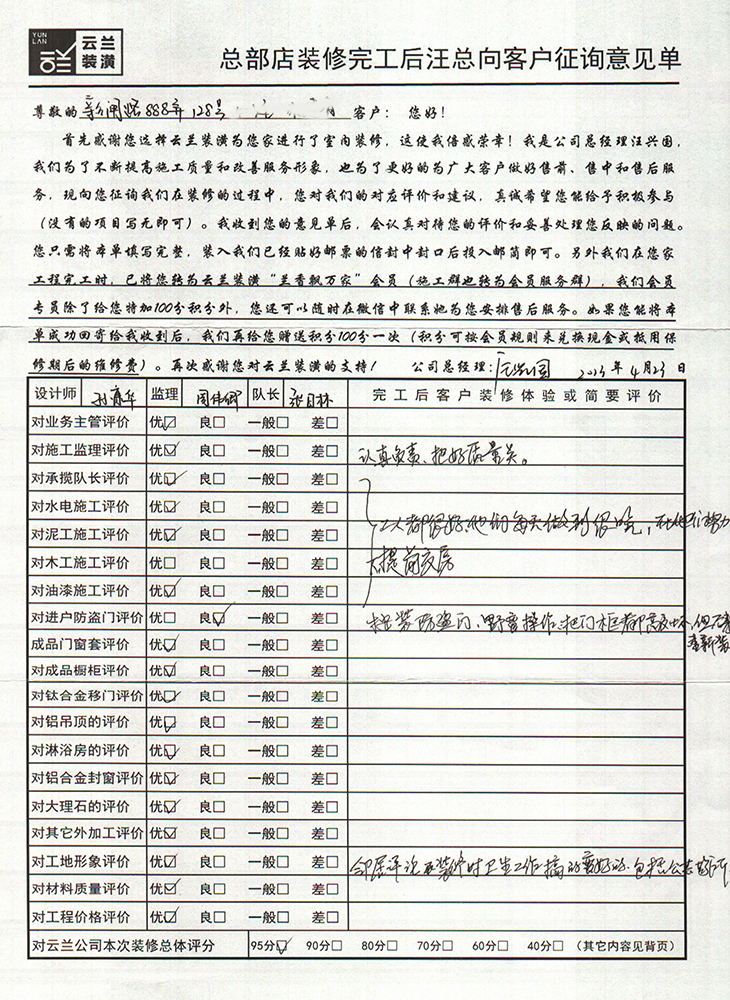 YUN LAN
云兰装潢
总部店装修完工后汪总向客户征询意见单
尊敬的 新闸路888弄128号 客户： 您好！
首先感谢您选择云兰装潢为您家进行了室内装修，这使我倍感荣幸！我是公司总经理汪兴国，
我们为了不断提高施工质量和改善服务形象，也为了更好的为广大客户做好售前、售中和售后服
务，现向您征询我们在装修的过程中，您对我们的对应评价和建议，真诚希望您能给予积极参与
（没有的项目写无即可）。我收到您的意见单后，会认真对待您的评价和妥善处理您反映的问题。
您只需将本单填写完整，装入我们已经贴好邮票的信封中封口后投入邮筒即可。另外我们在您家
工程完工时，已将您转为云兰装潢“兰香飘万家”会员（施工群也转为会员服务群），我们会员
专员除了给您特加100分积分外，您还可以随时在微信中联系她为您安排售后服务。如果您能将本
单成功回寄给我收到后，我们再给您赠送积分100分一次（积分可按会员规则来兑换现金或抵用保
修期后的维修费）。再次感谢您对云兰装潢的支持！ 公司总经理： 2023年4月23日
设计师 监理 周伟卿 队长 完工后客户装修体验或简要评价
对业务主管评价 优☑ 良□ 一般□ 差□
对施工监理评价 优☑ 良□ 一般□ 差□ 认真负责、把好质量关。
对承揽队长评价 优☑ 良□ 一般□ 差□
对水电施工评价 优☑ 良□ 一般□ 差□
对泥工施工评价 优☑ 良□ 一般□ 差□ 工人都很好，他们每天做到很晚，在他们努力
对木工施工评价 优□ 良□ 一般□ 差□ 提前交房
对油漆施工评价 优☑ 良□ 一般□ 差□
对进户防盗门评价 优□ 良☑ 一般□ 差□ 安装防盗门、野蛮操作、把门框都敲坏，但
成品门窗套评价 优☑ 良□ 一般□ 差□ 重新装
对成品橱柜评价 优☑ 良□ 一般□ 差□
对钛合金移门评价 优☑ 良□ 一般□ 差□
对铝吊顶的评价 优☑ 良□ 一般□ 差□
对淋浴房的评价 优☑ 良□ 一般□ 差□
对铝合金封窗评价 优☑ 良□ 一般□ 差□
对大理石的评价 优☑ 良□ 一般□ 差□
对其它外加工评价 优☑ 良□ 一般□ 差□
对工地形象评价 优☑ 良□ 一般□ 差□ 邻居评论在装修时卫生工作搞的蛮好的，包括公共
对材料质量评价 优☑ 良□ 一般□ 差□
对工程价格评价 优☑ 良□ 一般□ 差□
对云兰公司本次装修总体评分 95分☑ 90分□ 80分□ 70分□ 60分□ 40分□ （其它内容见背页）